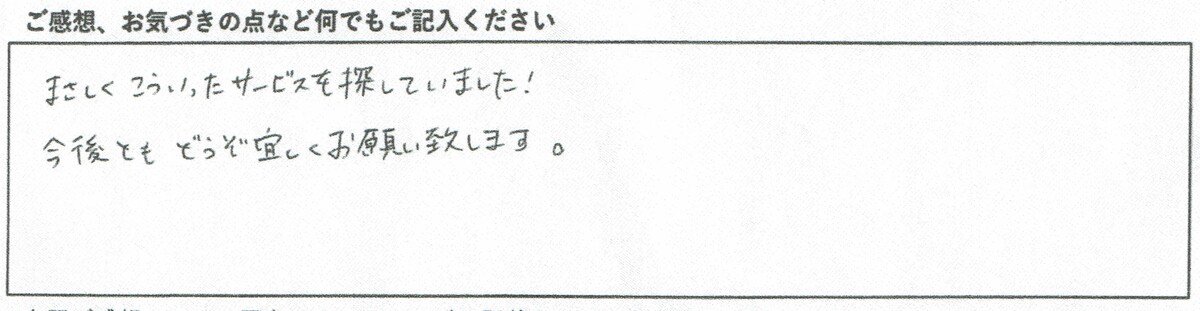 ご感想、お気づきの点など何でもご記入ください
まさしくこういったサービスを探していました!
今後とも どうぞ宜しくお願い致します。